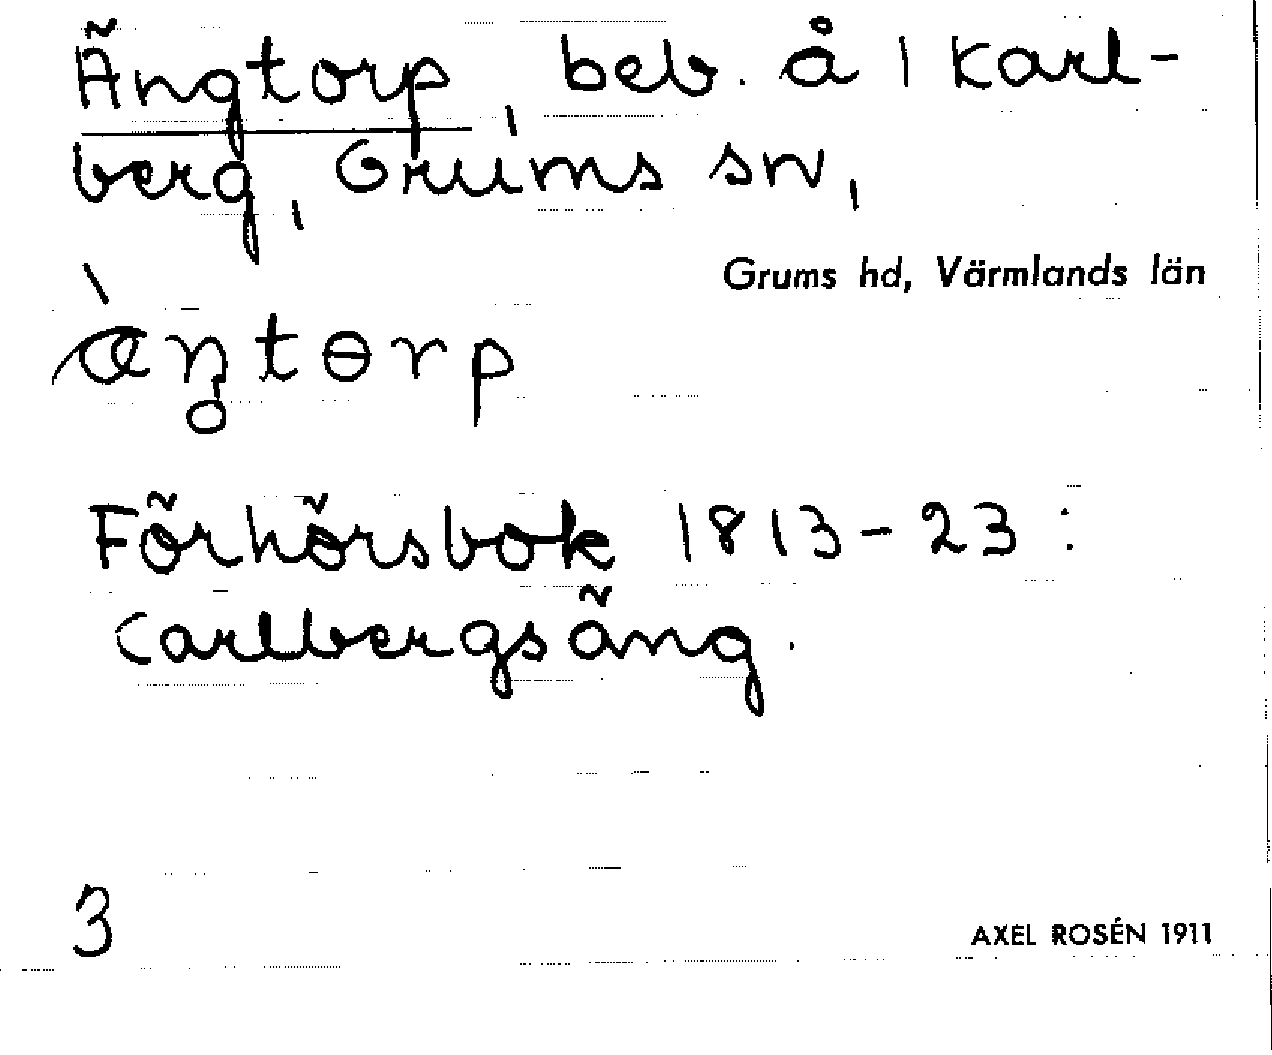 Ängtorp, beb. å 1 Karl-
berg, Grums sn,
Grums hd, Värmlands län
Förhörsbok 1813-23:
Carlbergsäng.
3
AXEL ROSÉN 1911